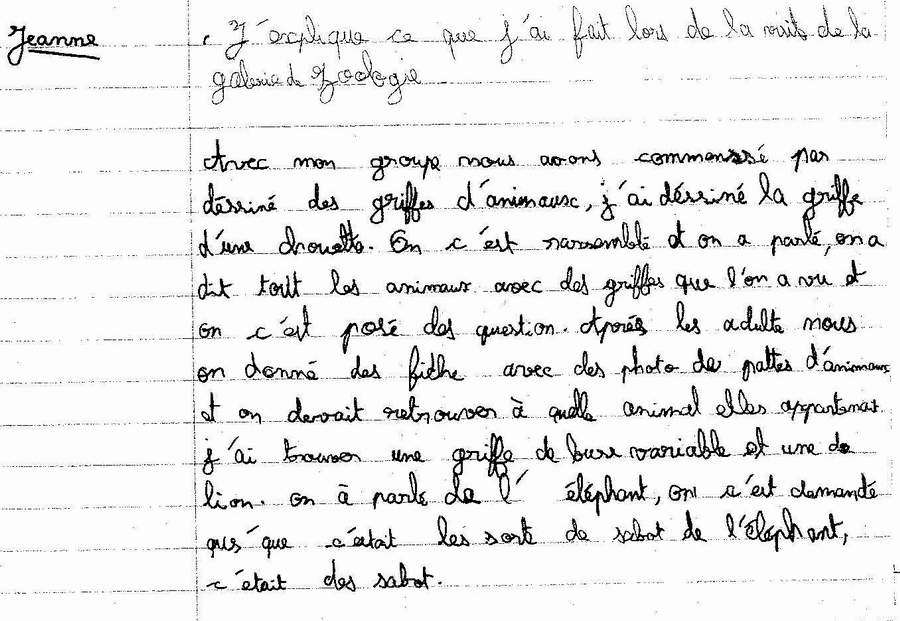 Jeanne
. J'explique ce que j'ai fait lors de la nuit de la
galerie de Zoologie
Avec mon groupe nous avons commenssé par
déssiné des griffes d'animaux, j'ai déssiné la griffe
d'une chouette. On c'est rassemblé et on a parlé, on a
dit tout les animaux avec des griffes que l'on a vu et
on c'est posé des question. Aprés les adulte nous
on donné des fiche avec des photo de pattes d'animaux
et on devait retrouver à quelle animal elles appartenait.
j'ai trouver une griffe de buse variable et une de
lion. on à parlé de l' éléphant, on c'est demandé
qus'que c'était les sorte de sabot de l'éléphant,
c'était des sabot.